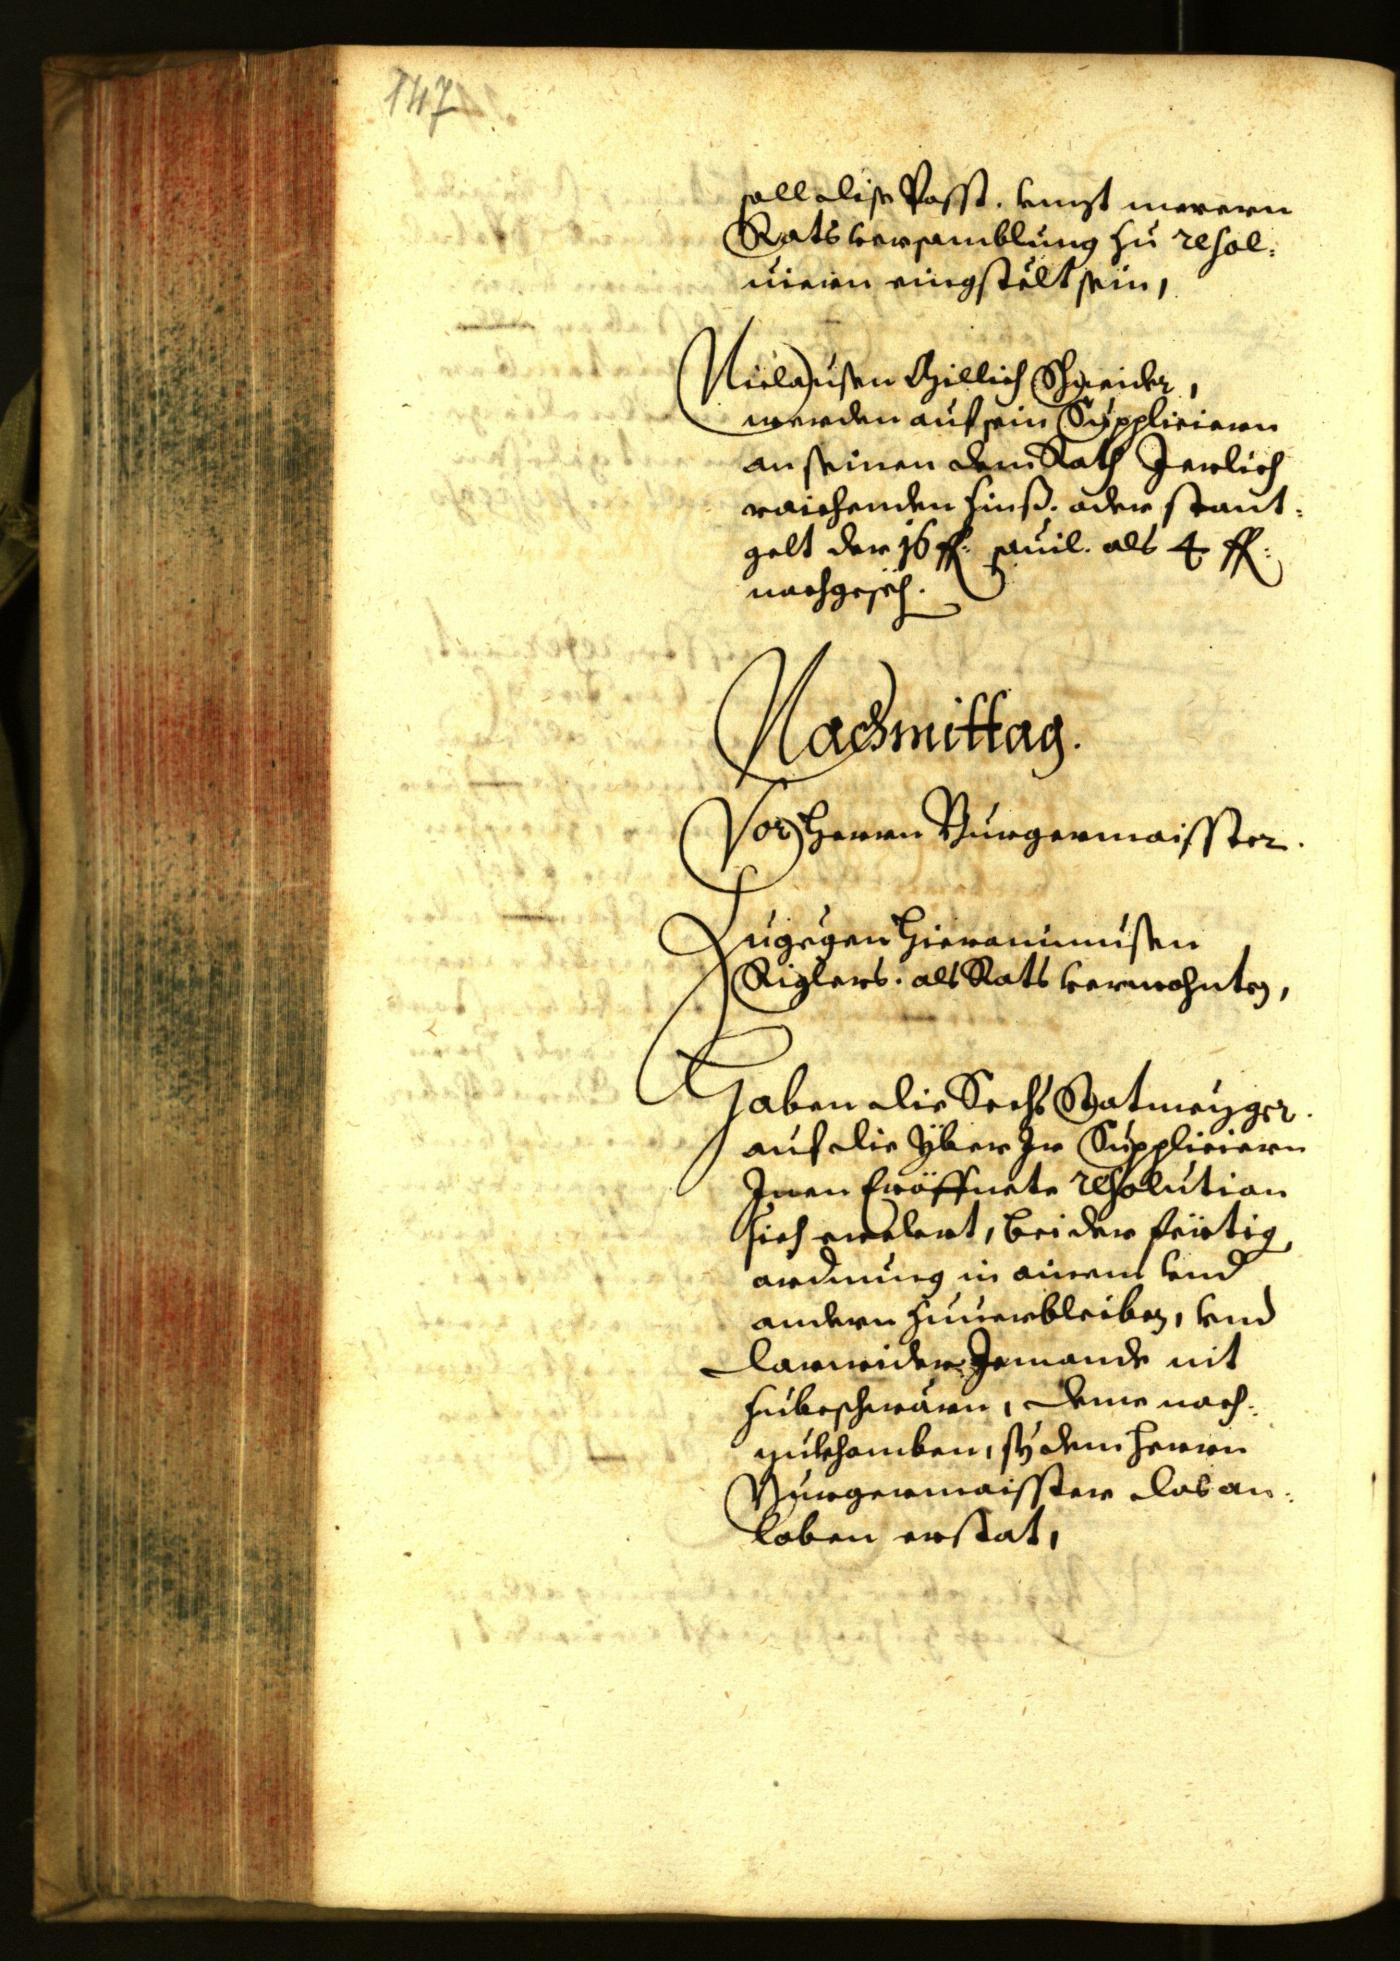 147
soll dise Posst. bingst merern
Rats versamblung zu resol¬
uiern eingstelt sein,
Niclausen Gillich Schneider,
werden auf sein Suppliciern
an seinen dem Rath Jerlich
raichenden Zinß. oder stant¬
gelt der 16 fl: souil. als 4 fl:
nachgesech.
Nachmittag.
Vor Herrn Burgermaisster.
Zugegen Hieronimusen
Riglers. als Rats verwohnten,
Haben die Sechs Statmezger.
auf die yber Ir Suppliciern
Inen Eröffnete resolution
sich erclert, bei der fertig
ordnung in ainem vnd
andern zuuerbleiben, vnd
darwider Jemands nit
zubeschwärn, deme nach¬
zukhomben, sy dem Herrn
Burgermaisster das an¬
loben erstat,